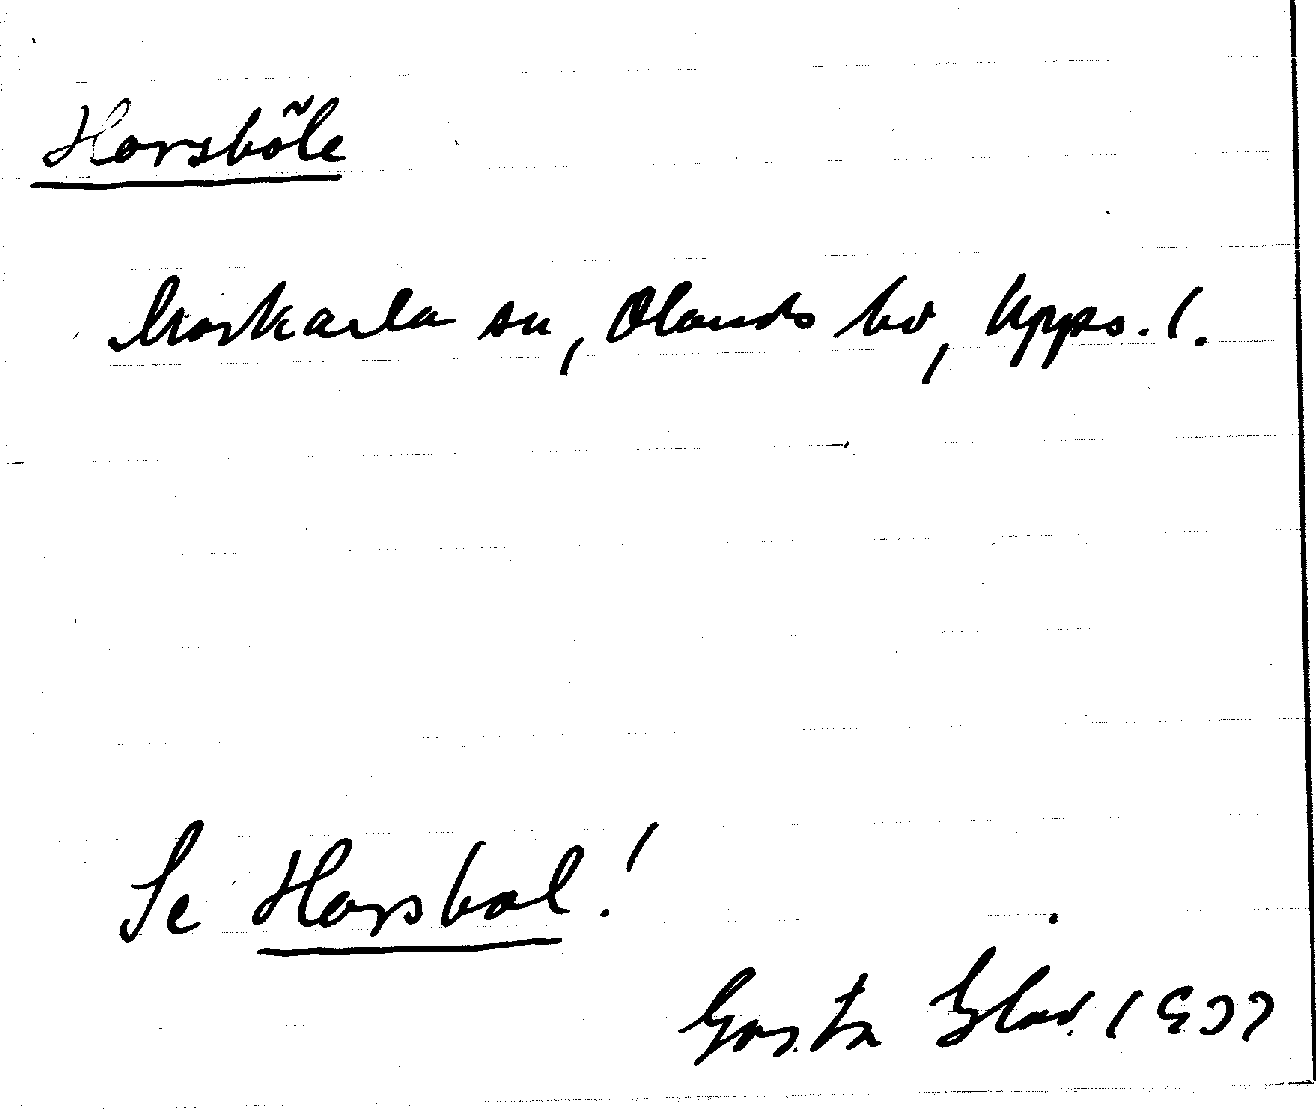 Horsböle
Morkarla sn, Olands hd, Upps. l.
Se Horsbol!
Gösta Blad 1937